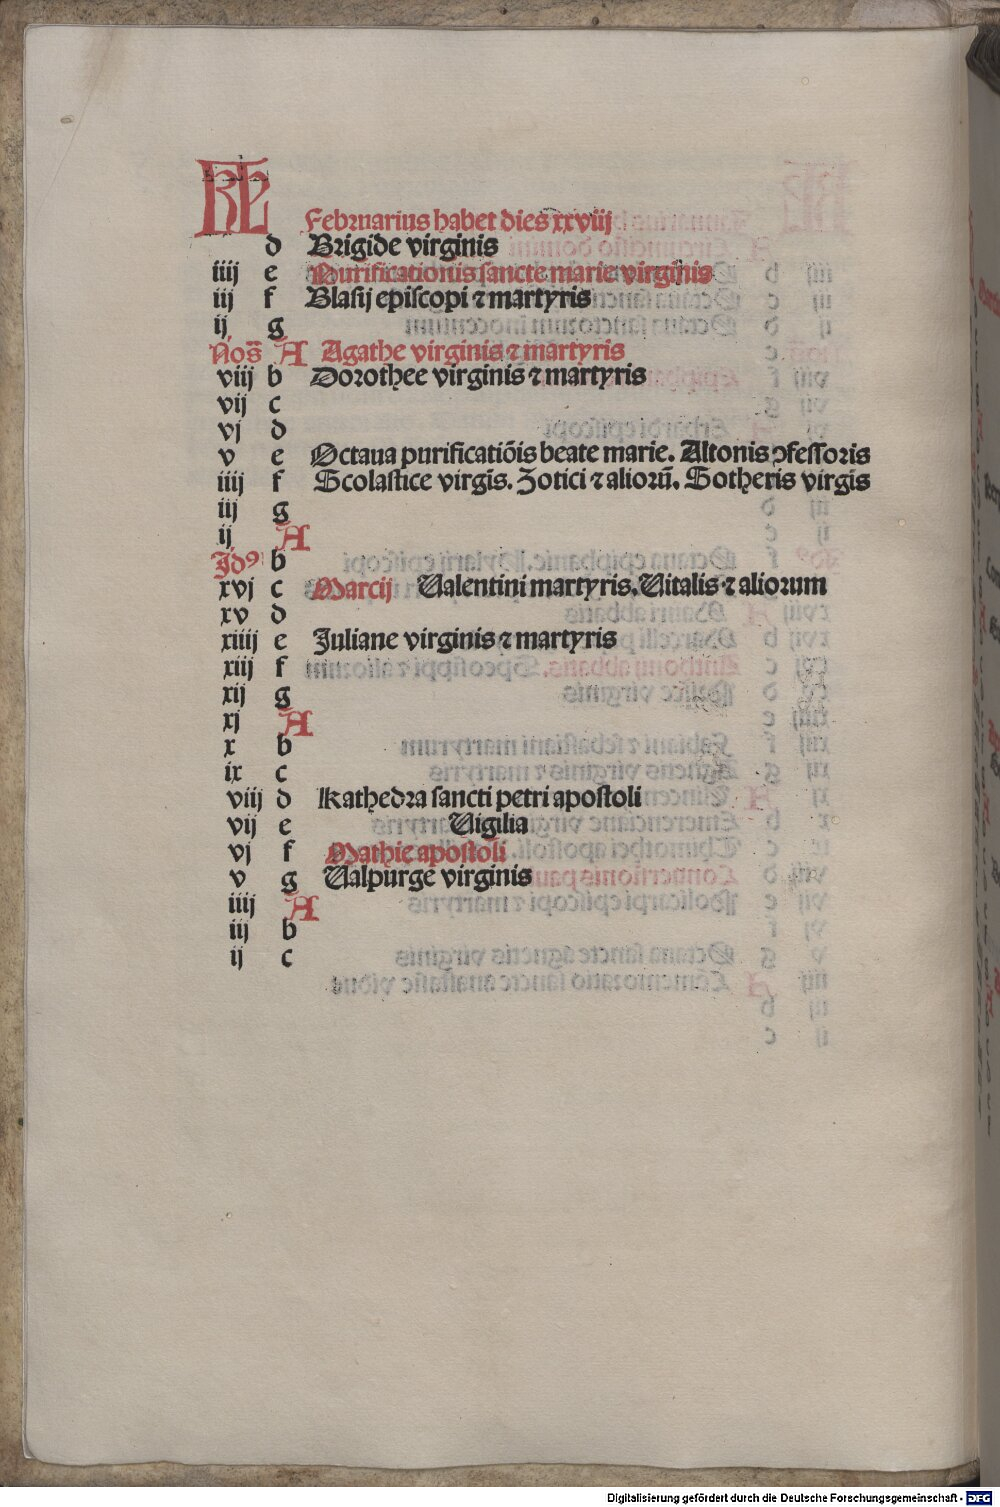 KL Februarius habet dies xxviij
d Brigide virginis
iiij e Purificationis sancte marie virginis
iij f Blasij episcopi ⁊ martyris
ij g
Nōs A Agathe virginis ⁊ martyris
viij b Dorothee virginis ⁊ martyris
vij c
vj d
v e Octaua purificatiōis beate marie. Altonis ↄfessoris
iiij f Scolastice virgīs. Zotici ⁊ aliorū. Sotheris virgīs
iij g
ij A
Idꝯ b
xvj c Marcij Ualentini martyris. Uitalis ⁊ aliorum
xv d
xiiij e Juliane virginis ⁊ martyris
xiij f
xij g
xj A
x b
ix c
viij d Kathedra sancti petri apostoli
vij e Uigilia
vj f Mathie apostoli
v g Ualpurge virginis
iiij A
iij b
ij c
Digitalisierung gefördert durch die Deutsche Forschungsgemeinschaft - DFG